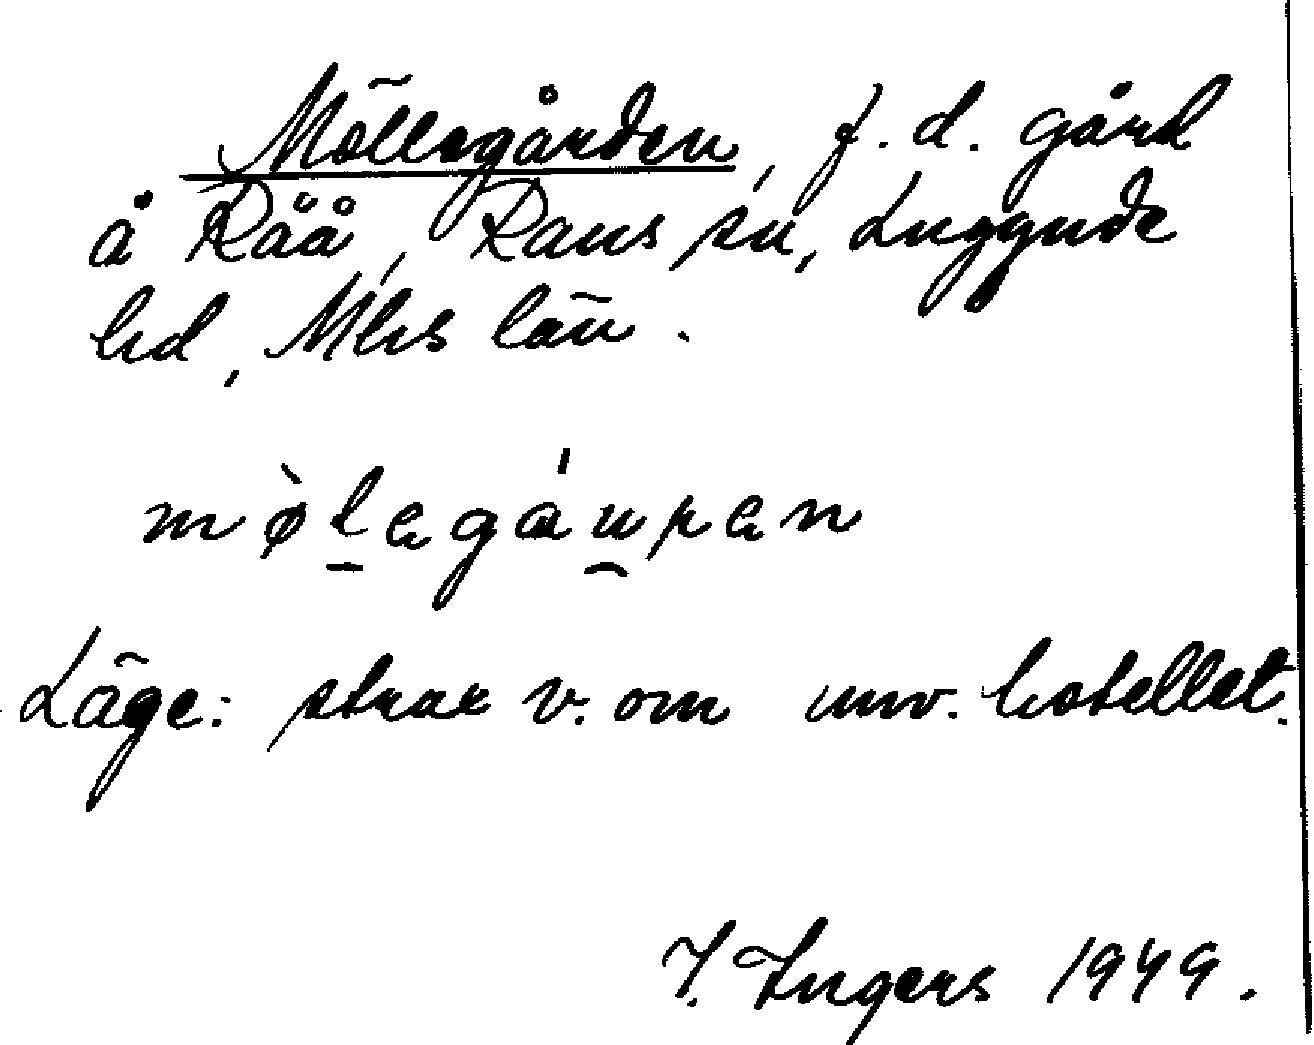 Möllegården, f.d. gård
å Råå, Raus sn, Luggude
hd, Mlhs län.
mø̀l̠egáu̯ren
Läge: strax v. om nuv. hotellet.
I. Ingers 1949.